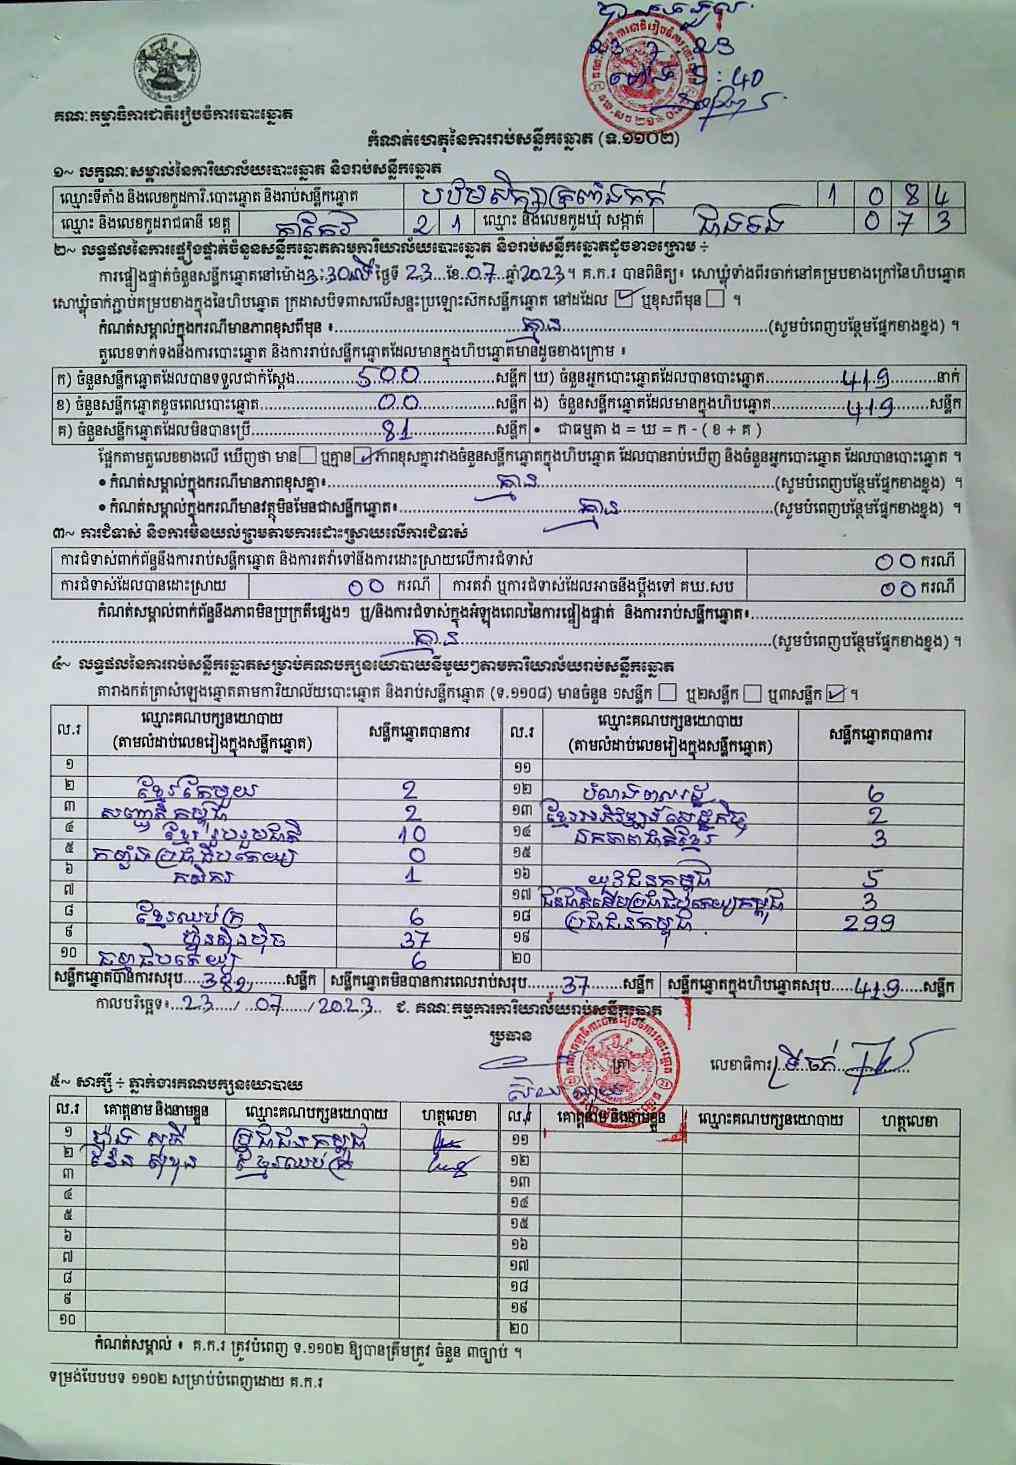 23 7 23
ម៉ោង 5:40
គណៈកម្មាធិការជាតិរៀបចំការបោះឆ្នោត
កំណត់ហេតុនៃការរាប់សន្លឹកឆ្នោត (ទ.១១០២)
១~ លក្ខណៈសម្គាល់នៃការិយាល័យបោះឆ្នោត និងរាប់សន្លឹកឆ្នោត
ឈ្មោះទីតាំង និងលេខកូដការិ.បោះឆ្នោត និងរាប់សន្លឹកឆ្នោត បឋមសិក្សាត្រពាំងកក់ 1 0 8 4
ឈ្មោះ និងលេខកូដរាជធានី ខេត្ត តាកែវ 2 1 ឈ្មោះ និងលេខកូដឃុំ សង្កាត់ 0 7 3
២~ លទ្ធផលនៃការផ្ទៀងផ្ទាត់ចំនួនសន្លឹកឆ្នោតតាមការិយាល័យបោះឆ្នោត និងរាប់សន្លឹកឆ្នោតដូចខាងក្រោម ÷
ការផ្ទៀងផ្ទាត់ចំនួនសន្លឹកឆ្នោតនៅម៉ោង 3:30 ថ្ងៃទី 23 ខែ 07 ឆ្នាំ 2023 ។ គ.ក.រ បានពិនិត្យ៖ សោឃ្លុំទាំងពីរចាក់នៅគម្របខាងក្រៅនៃហិបឆ្នោត
សោឃ្លុំចាក់ភ្ជាប់គម្របខាងក្នុងនៃហិបឆ្នោត ក្រដាសបិទពាសលើសន្ទះប្រឡោះស៊កសន្លឹកឆ្នោត នៅដដែល ☑ ឬខុសពីមុន ☐ ។
កំណត់សម្គាល់ក្នុងករណីមានភាពខុសពីមុន ៖ គ្មាន (សូមបំពេញបន្ថែមផ្នែកខាងខ្នង) ។
តួលេខទាក់ទងនឹងការបោះឆ្នោត និងការរាប់សន្លឹកឆ្នោតដែលមានក្នុងហិបឆ្នោតមានដូចខាងក្រោម ៖
ក) ចំនួនសន្លឹកឆ្នោតដែលបានទទួលជាក់ស្តែង 500 សន្លឹក ឃ) ចំនួនអ្នកបោះឆ្នោតដែលបានបោះឆ្នោត 419 នាក់
ខ) ចំនួនសន្លឹកឆ្នោតខូចពេលបោះឆ្នោត 00 សន្លឹក ង) ចំនួនសន្លឹកឆ្នោតដែលមានក្នុងហិបឆ្នោត 419 សន្លឹក
គ) ចំនួនសន្លឹកឆ្នោតដែលមិនបានប្រើ 81 សន្លឹក • ជាធម្មតា ង = ឃ = ក - ( ខ + គ )
ផ្អែកតាមតួលេខខាងលើ ឃើញថា មាន ☐ ឬគ្មាន ☑ ភាពខុសគ្នារវាងចំនួនសន្លឹកឆ្នោតក្នុងហិបឆ្នោត ដែលបានរាប់ឃើញ និងចំនួនអ្នកបោះឆ្នោត ដែលបានបោះឆ្នោត ។
• កំណត់សម្គាល់ក្នុងករណីមានភាពខុសគ្នា៖ គ្មាន (សូមបំពេញបន្ថែមផ្នែកខាងខ្នង) ។
• កំណត់សម្គាល់ក្នុងករណីមានវត្ថុមិនមែនជាសន្លឹកឆ្នោត៖ គ្មាន (សូមបំពេញបន្ថែមផ្នែកខាងខ្នង) ។
៣~ ការជំទាស់ និងការមិនយល់ព្រមតាមការដោះស្រាយលើការជំទាស់
ការជំទាស់ពាក់ព័ន្ធនឹងការរាប់សន្លឹកឆ្នោត និងការតវ៉ាទៅនឹងការដោះស្រាយលើការជំទាស់ 00 ករណី
ការជំទាស់ដែលបានដោះស្រាយ 00 ករណី ការតវ៉ា ឬការជំទាស់ដែលអាចនឹងប្តឹងទៅ គឃ.សប 00 ករណី
កំណត់សម្គាល់ពាក់ព័ន្ធនឹងភាពមិនប្រក្រតីផ្សេងៗ ឬ/និងការជំទាស់ក្នុងអំឡុងពេលនៃការផ្ទៀងផ្ទាត់ និងការរាប់សន្លឹកឆ្នោត៖
គ្មាន (សូមបំពេញបន្ថែមផ្នែកខាងខ្នង) ។
៤~ លទ្ធផលនៃការរាប់សន្លឹកឆ្នោតសម្រាប់គណបក្សនយោបាយនីមួយៗតាមការិយាល័យរាប់សន្លឹកឆ្នោត
តារាងកត់ត្រាសំឡេងឆ្នោតតាមការិយាល័យបោះឆ្នោត និងរាប់សន្លឹកឆ្នោត (ទ.១១០៨) មានចំនួន ១សន្លឹក ☐ ឬ២សន្លឹក ☐ ឬ៣សន្លឹក ☑ ។
ល.រ ឈ្មោះគណបក្សនយោបាយ (តាមលំដាប់លេខរៀងក្នុងសន្លឹកឆ្នោត) សន្លឹកឆ្នោតបានការ ល.រ ឈ្មោះគណបក្សនយោបាយ (តាមលំដាប់លេខរៀងក្នុងសន្លឹកឆ្នោត) សន្លឹកឆ្នោតបានការ
១ ១១
២ ខ្មែរតែមួយ 2 ១២ 6
៣ សញ្ជាតិកម្ពុជា 2 ១៣ ខ្មែរអភិវឌ្ឍន៍សេដ្ឋកិច្ច 2
៤ ខ្មែររួបរួមជាតិ 10 ១៤ ឯកភាពជាតិខ្មែរ 3
៥ កម្លាំងប្រជាធិបតេយ្យ 0 ១៥
៦ កសិករ 1 ១៦ យុវជនកម្ពុជា 5
៧ ១៧ ជនជាតិដើមប្រជាធិបតេយ្យកម្ពុជា 3
៨ ខ្មែរឈប់ក្រ 6 ១៨ ប្រជាជនកម្ពុជា 299
៩ ហ៊្វុនស៊ិនប៉ិច 37 ១៩
១០ ធម្មាធិបតេយ្យ 6 ២០
សន្លឹកឆ្នោតបានការសរុប 382 សន្លឹក សន្លឹកឆ្នោតមិនបានការពេលរាប់សរុប 37 សន្លឹក សន្លឹកឆ្នោតក្នុងហិបឆ្នោតសរុប 419 សន្លឹក
កាលបរិច្ឆេទ៖ 23 / 07 / 2023 ជ. គណៈកម្មការការិយាល័យរាប់សន្លឹកឆ្នោត
ប្រធាន
ត្រា លេខាធិការ
៥~ សាក្សី ÷ ភ្នាក់ងារគណបក្សនយោបាយ
ល.រ គោត្តនាម និងនាមខ្លួន ឈ្មោះគណបក្សនយោបាយ ហត្ថលេខា ល.រ គោត្តនាម និងនាមខ្លួន ឈ្មោះគណបក្សនយោបាយ ហត្ថលេខា
១ ប្រជាជនកម្ពុជា ១១
២ ខ្មែរឈប់ក្រ ១២
៣ ១៣
៤ ១៤
៥ ១៥
៦ ១៦
៧ ១៧
៨ ១៨
៩ ១៩
១០ ២០
កំណត់សម្គាល់ ៖ គ.ក.រ ត្រូវបំពេញ ទ.១១០២ ឱ្យបានត្រឹមត្រូវ ចំនួន ៣ច្បាប់ ។
ទម្រង់បែបបទ ១១០២ សម្រាប់បំពេញដោយ គ.ក.រ